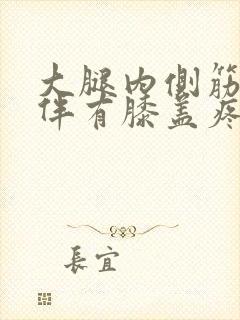 大腿内侧筋
伴有膝盖疼
長宜